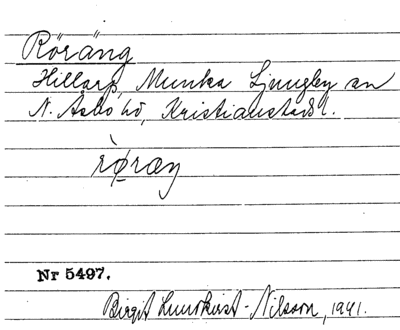 Röräng
Hillarp, Munka Ljungby sn
N. Åsbo hd, Kristianstads l.
røræŋ
Nr 5497.
Birgit Lundkvist-Nilsson, 1941.